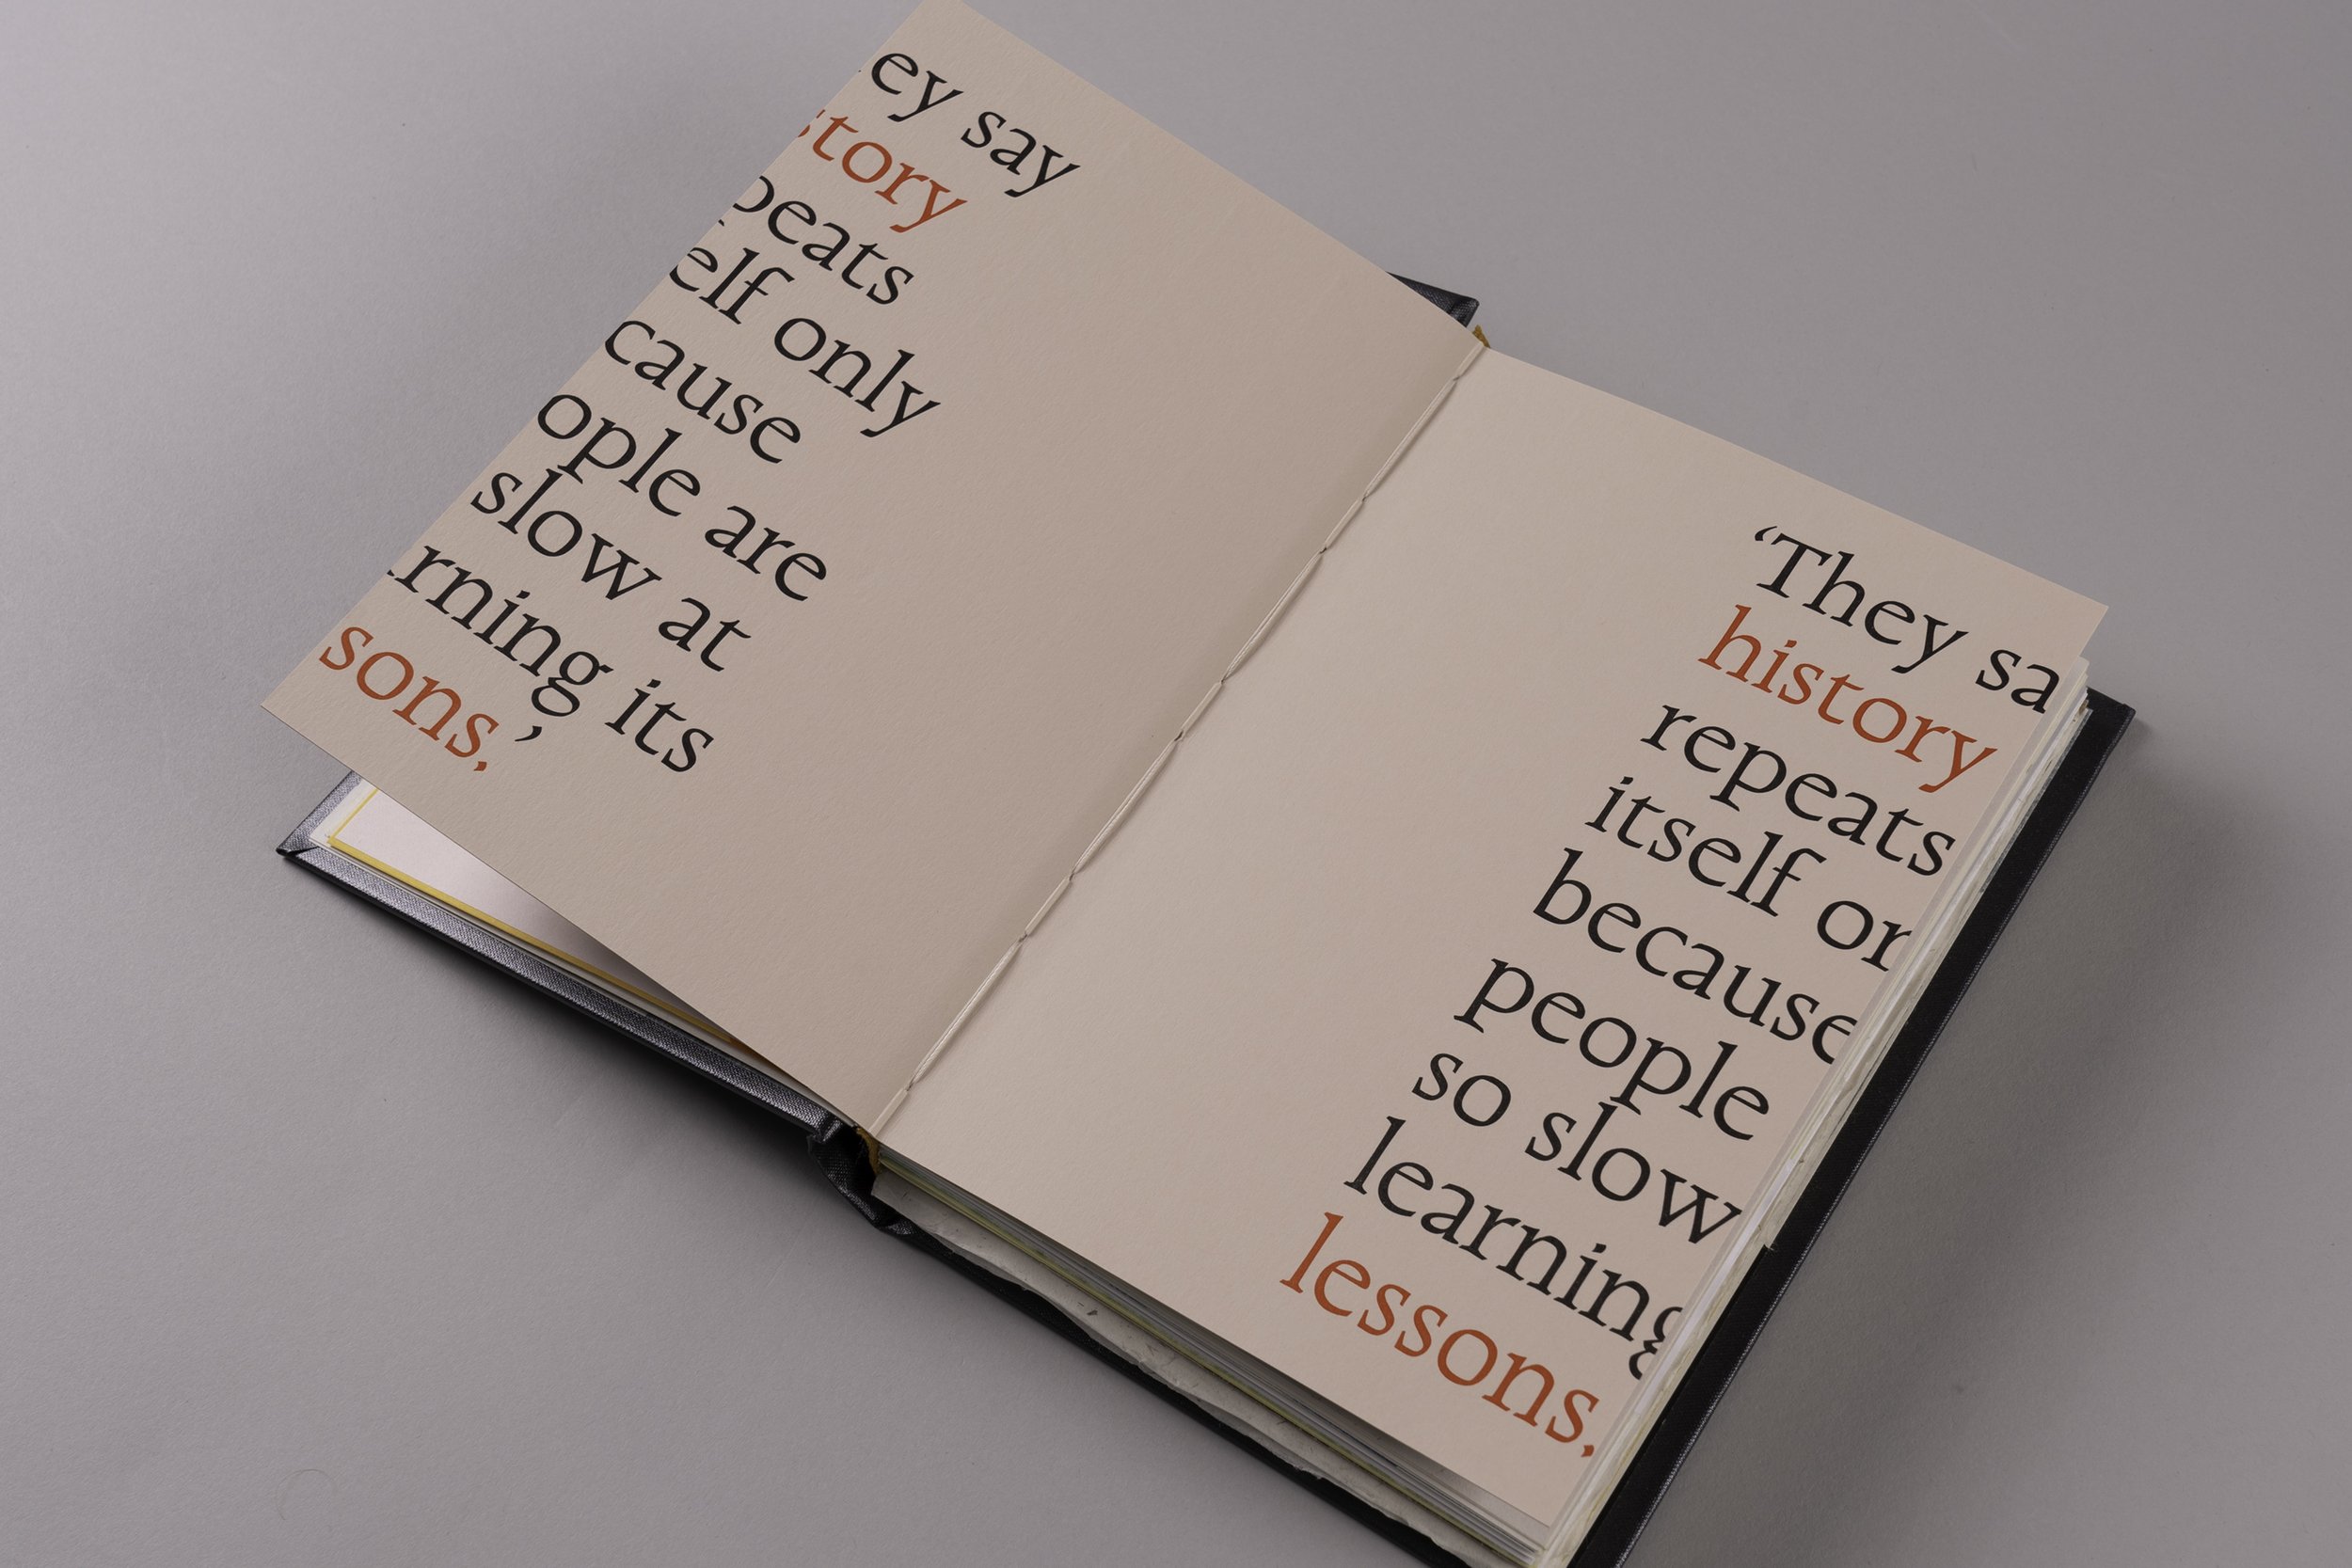 ey say
story
peats
elf only
cause
ople are
slow at
rning its
sons.’
‘They sa
history
repeats
itself on
because
people
so slow
learning
lessons.